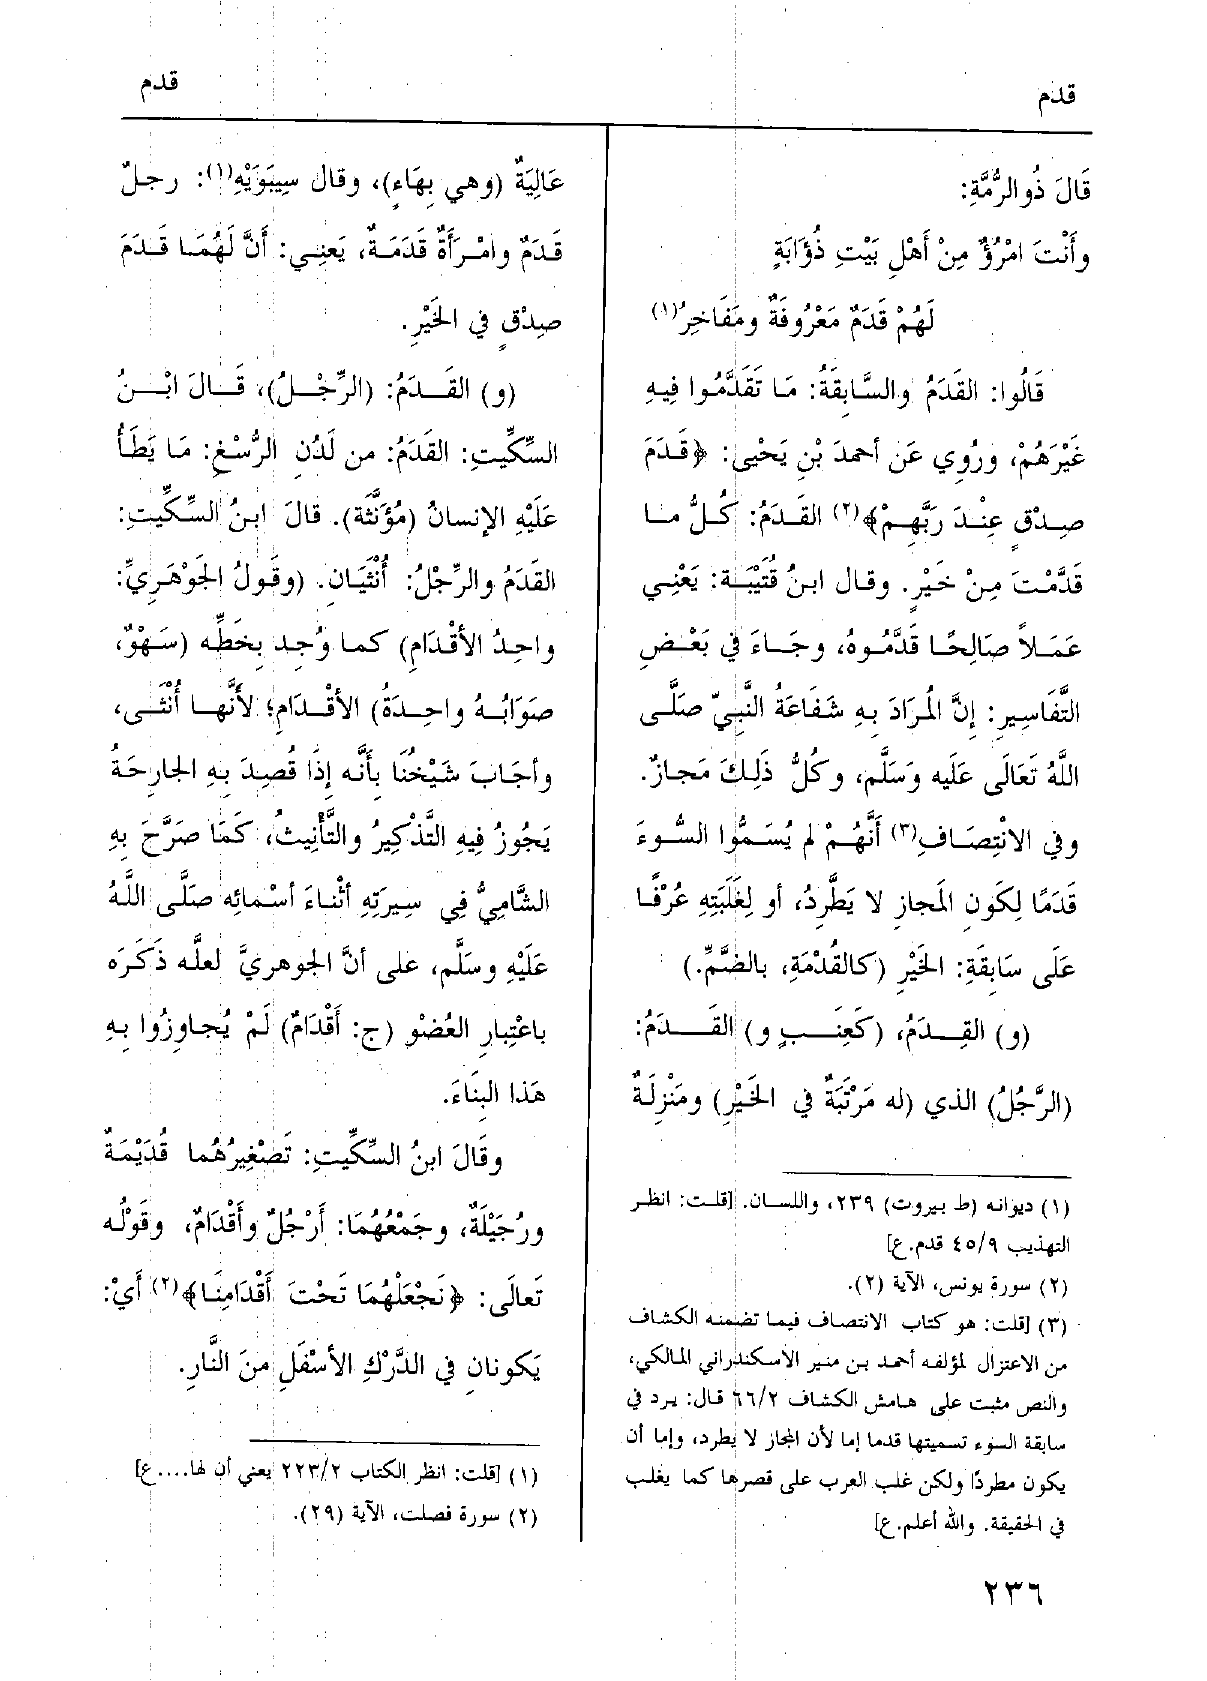 قدم
قدم
قَالَ ذُو الرُّمَّةِ:
وأَنْتَ امْرُؤٌ مِنْ أَهْلِ بَيْتِ ذُؤَابَةٍ
لَهُمْ قَدَمٌ مَعْرُوفَةٌ ومَفَاخِرُ(١)
قَالُوا: القَدَمُ والسَّابِقَةُ: مَا تَقَدَّمُوا فِيهِ
غَيْرَهُمْ، ورُوِي عَن أحمدَ بْنِ يَحْيى: ﴿قَدَمَ
صِدْقٍ عِنْدَ رَبِّهِمْ﴾(٢) القَدَمُ: كُلُّ مـا
قَدَّمْتَ مِنْ خَيْرٍ. وقال ابنُ قُتَيْبَة: يَعْنِي
عَمَلاً صَالِحًا قَدَّمُوهُ، وجَاءَ في بَعْضِ
التَّفَاسِيرِ: إنَّ المُرَادَ بِهِ شَفَاعَةُ النَّبِيِّ صَلَّى
اللَّهُ تَعَالَى عَلَيه وَسَلَّم، وكُلُّ ذَلِكَ مَجازٌ.
وفي الانْتِصَافِ(٣) أَنَّهُمْ لم يُسَمُّوا السُّوءَ
قَدَمًا لِكَونِ المَجازِ لا يَطَّرِدُ، أو لِغَلَبَتِهِ عُرْفًا
عَلَى سَابِقَةِ: الخَيْرِ (كالقُدْمَةِ، بالضَّمِّ.)
(و) القِدَمُ، (كَعِنَبٍ و) القَدَمُ:
(الرَّجُلُ) الذي (له مَرْتَبَةٌ في الخَيْرِ) ومَنْزِلَةٌ
(١) ديوانه (ط بيروت) ٢٣٩، واللسان. [قلت: انظر
التهذيب ٤٥/٩ قدم.ع]
(٢) سورة يونس، الآية (٢).
(٣) [قلت: هو كتاب الانتصاف فيما تضمنه الكشاف
من الاعتزال لمؤلفه أحمد بن منير الاسكندراني المالكي،
والنص مثبت على هامش الكشاف ٦٦/٢ قال: يرد في
سابقة السوء تسميتها قدما إما لأن المجاز لا يطرد، وإما أن
يكون مطردًا ولكن غلب العرب على قصرها كما يغلب
في الحقيقة. والله أعلم.ع]
عَالِيَةٌ (وهي بِهَاءٍ)، وقال سِيبَوَيْهِ(١): رجلٌ
قَدَمٌ وامْرَأَةٌ قَدَمَةٌ، يَعنِي: أَنَّ لَهُمَا قَدَمَ
صِدْقٍ في الخَيْرِ.
(و) القَدَمُ: (الرِّجْلُ)، قَالَ ابْنُ
السِّكِّيتِ: القَدَمُ: من لَدُنِ الرُّسْغِ: مَا يَطَأُ
عَلَيْهِ الإنسانُ (مُؤَنَّثَة). قالَ ابنُ السِّكِّيتِ:
القَدَمُ والرِّجْلُ: أُنْثَيَان. (وقَولُ الجَوْهَرِيِّ:
واحِدُ الأقْدَامِ) كما وُجِد بِخَطِّه (سَهْوٌ،
صَوَابُهُ واحِدَةُ) الأقْدَامِ؛ لأَنَّها أُنْثَى،
وأجَابَ شَيْخُنَا بأنَّه إذَا قُصِدَ بِهِ الجارِحَةُ
يَجُوزُ فيهِ التَّذْكِيرُ والتَّأْنِيثُ، كَمَا صَرَّحَ بِهِ
الشَّامِيُّ فِي سِيرَتِهِ أثْنَاءَ أسْمائِه صَلَّى اللَّهُ
عَلَيْهِ وسَلَّم، على أنَّ الجوهريَّ لعلَّه ذَكَرَه
باعْتِبارِ العُضْوِ (ج: أَقْدَامٌ) لَمْ يُجاوِزُوا بِهِ
هَذا البِنَاءَ.
وقَالَ ابنُ السِّكِّيتِ: تَصْغِيرُهُما قُدَيْمَةٌ
ورُجَيْلَةٌ، وجَمْعُهُمَا: أَرْجُلٌ وأَقْدَامٌ، وقَوْلُه
تَعَالَى: ﴿نَجْعَلْهُمَا تَحْتَ أَقْدَامِنَا﴾(٢) أَيْ:
يَكونانِ في الدَّرْكِ الأسْفَلِ منَ النَّارِ.
(١) [قلت: انظر الكتاب ٢٢٣/٢ يعني أن لها....ع]
(٢) سورة فصلت، الآية (٢٩).
٢٣٦